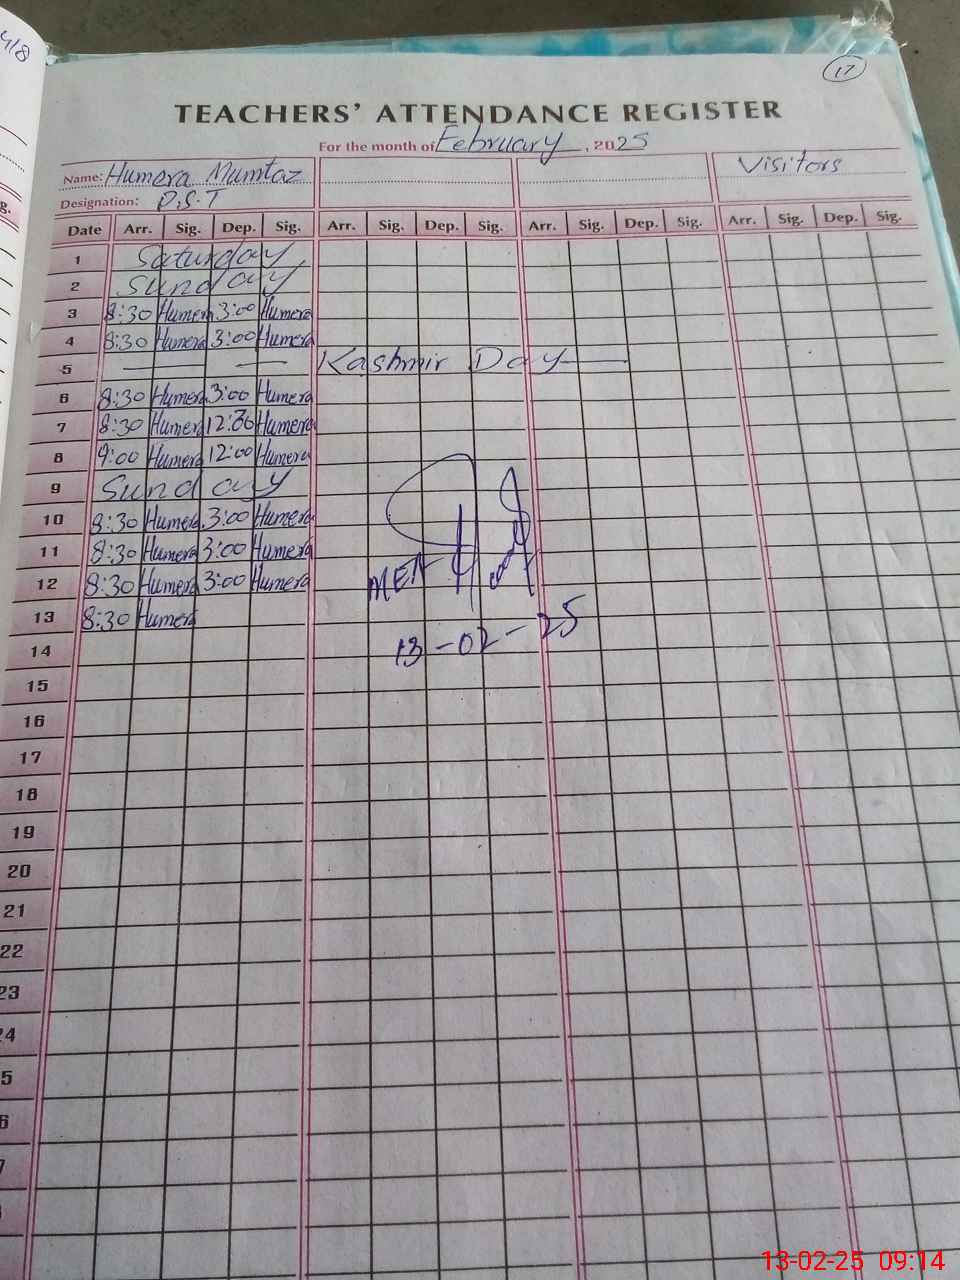 17
TEACHERS' ATTENDANCE REGISTER
For the month of February, 2025
Name: Humera Mumtaz Visitors
Designation: P.S.T
Date Arr. Sig. Dep. Sig. Arr. Sig. Dep. Sig. Arr. Sig. Dep. Sig. Arr. Sig. Dep. Sig.
1 Saturday
2 Sunday
3 8:30 Humera 3:00 Humera
4 8:30 Humera 3:00 Humera
5 — — — Kashmir Day —
6 8:30 Humera 3:00 Humera
7 8:30 Humera 12:30 Humera
8 9:00 Humera 12:00 Humera
9 Sunday
10 8:30 Humera 3:00 Humera
11 8:30 Humera 3:00 Humera
12 8:30 Humera 3:00 Humera
13 8:30 Humera
MEA
13-02-25
14
15
16
17
18
19
20
21
22
23
24
5
6
7
13-02-25 09:14